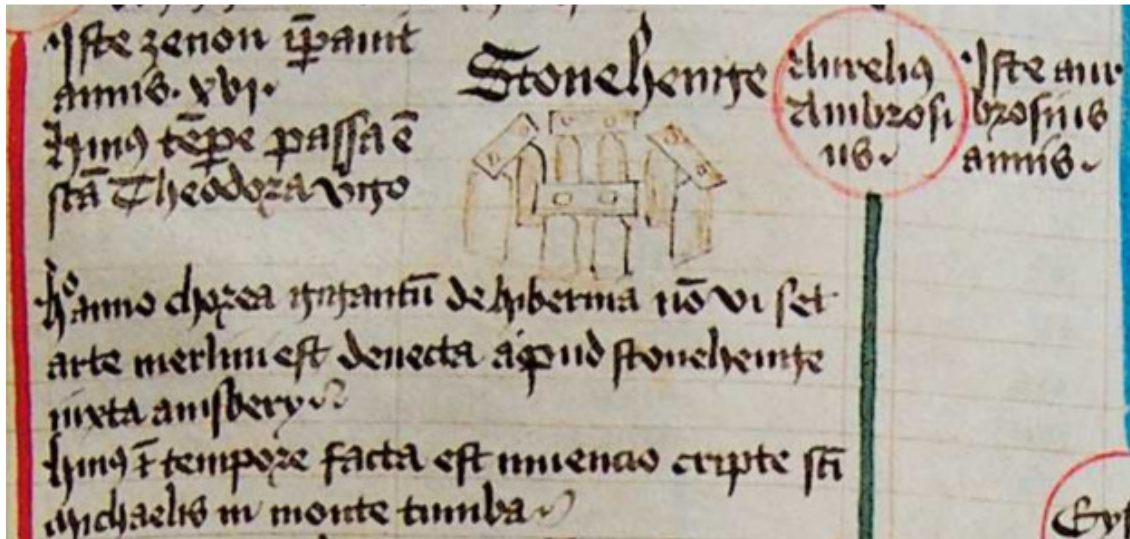 Iste zenon īpavit
annis. xvi.
Huiꝰ tēpe passa ē
stā Theodora virgo
Stonehenge
Aureliꝰ
Ambrosi
us.
Iste aur
brosius
annis.
Hº anno chorea gigantū de hibernia nō vi set
arte merlini est devecta apud stonehenge
iuxta amsbery
Huiꝰ ī tempore facta est invencio cripte sti
michaelis in monte tumba